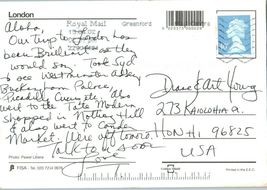 London
Royal Mail
Greenford
Aloha,
Our trip to London has
been Brilliant as they
would say. Took Syd
to see Westminster Abbey
Buckingham Palace,
Picadilly Circus, etc. Also
went to the Tate Modern
shopped in Notting Hill
& also went to
Market. We're off tomro.
Talk to u soon
Love
Diane & Art Young
273 Kaiolohia Pl.
HON HI 96825
USA
Photo: Powerstock
FISA - Tel: 020 7214 0876
Printed in the E.E.C.